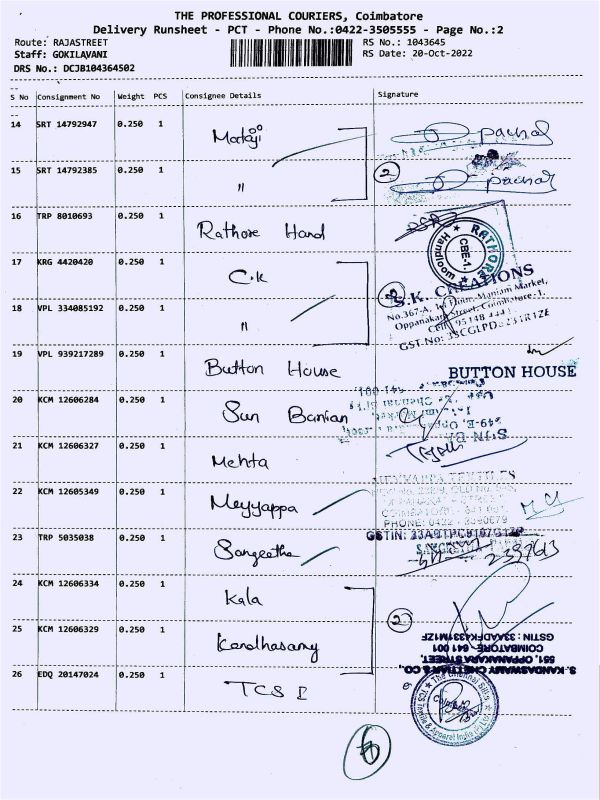 THE PROFESSIONAL COURIERS, Coimbatore
Delivery Runsheet - PCT - Phone No.:0422-3505555 - Page No.:2
Route: RAJASTREET RS No.: 1043645
Staff: GOKILAVANI RS Date: 20-Oct-2022
DRS No.: DCJB104364502
S No Consignment No Weight PCS Consignee Details Signature
14 SRT 14792947 0.250 1 Mataji
15 SRT 14792385 0.250 1 "
2
16 TRP 8010693 0.250 1 Rathore Hand
RATHORE Handloom CBE-1.
17 KRG 4420420 0.250 1 C.K
S.K. CREATIONS
No.367-A, 1st Floor, Maniam Market,
Oppanakara Street, Coimbatore-1.
18 VPL 334085192 0.250 1 "
19 VPL 939217289 0.250 1 Button House
BUTTON HOUSE
20 KCM 12606284 0.250 1 Sun Banian
21 KCM 12606327 0.250 1 Mehta
22 KCM 12605349 0.250 1 Meyyappa
MEYYAPPA TEXTILES
COIMBATORE - 641 001
23 TRP 5035038 0.250 1 Sangeetha
24 KCM 12606334 0.250 1 Kala
2
25 KCM 12606329 0.250 1 Kandhasamy
S. KANDASWAMY CHETTIAR & CO.,
551, OPPANAKARA STREET,
COIMBATORE - 641 001
GSTIN : 33AADFK4331M1ZF
26 EDQ 20147024 0.250 1 TCS I
The Chennai Silks
TCS Textile & Apparel India (P) Ltd
6